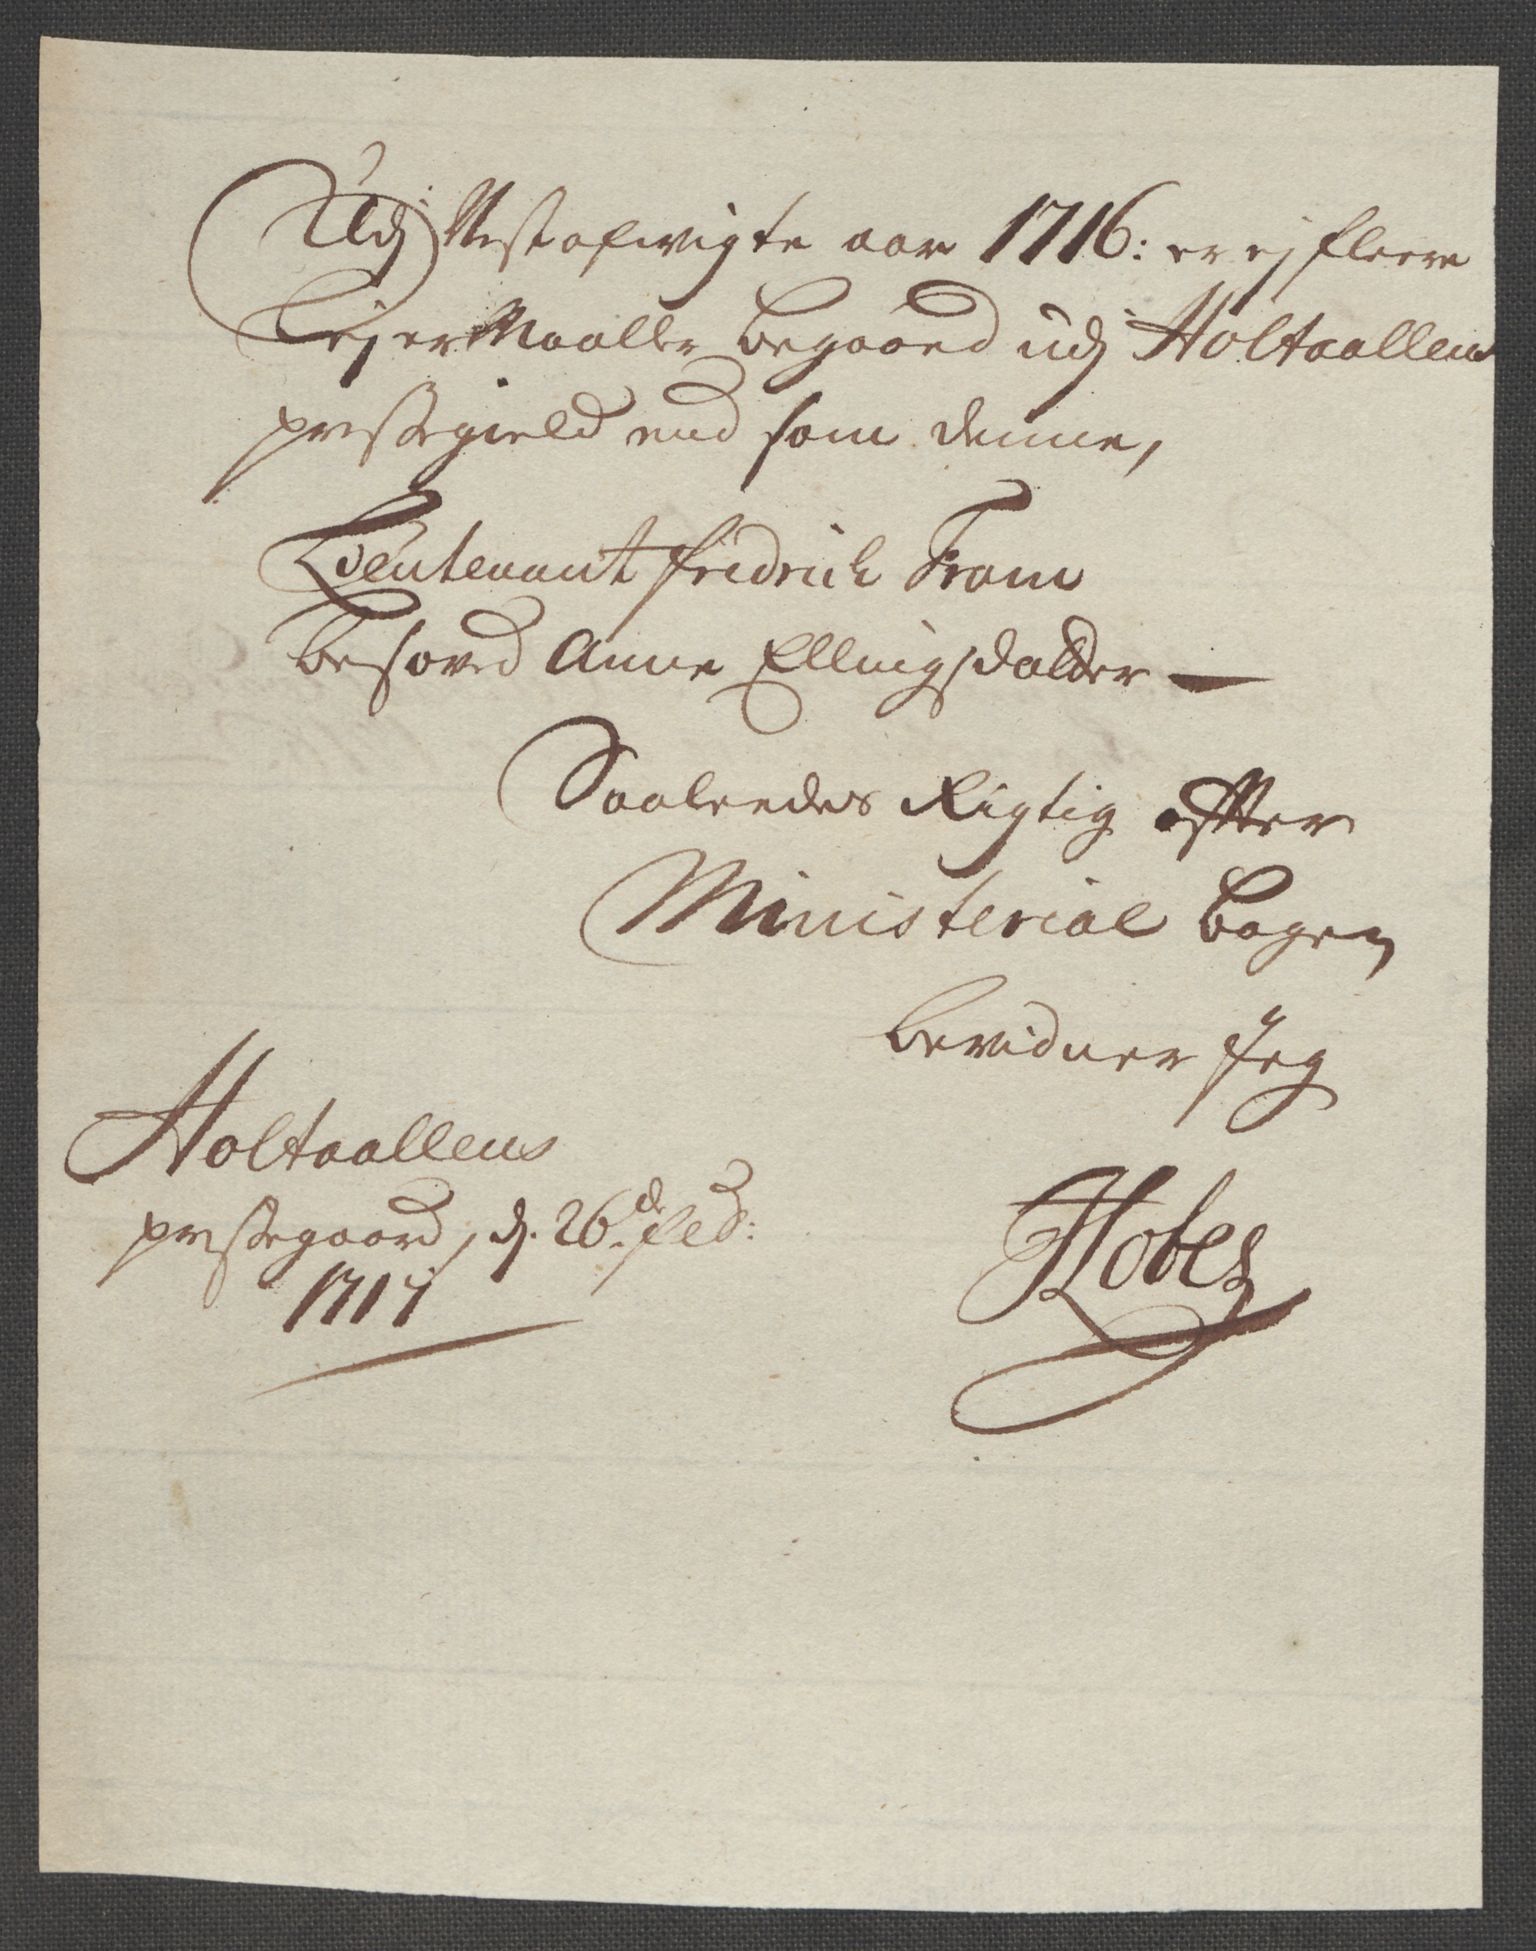 Udj Nestafvigte aar 1716: er ej fleere
Lejermaaller begaaed udj Holtaallens
præstegield end som denne,
Lieutenant Fridrich From
besoved Anne Ellingsdatter —
Saaleedes Rigtig effter
Ministerial bogen
bevidner Jeg
Holtaallens
præstegaard, d. 26de Feb:
1717